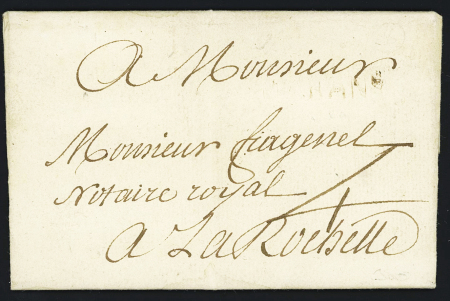 A Monsieur
Monsieur fragenel
Notaire royal 4
a La Rochelle